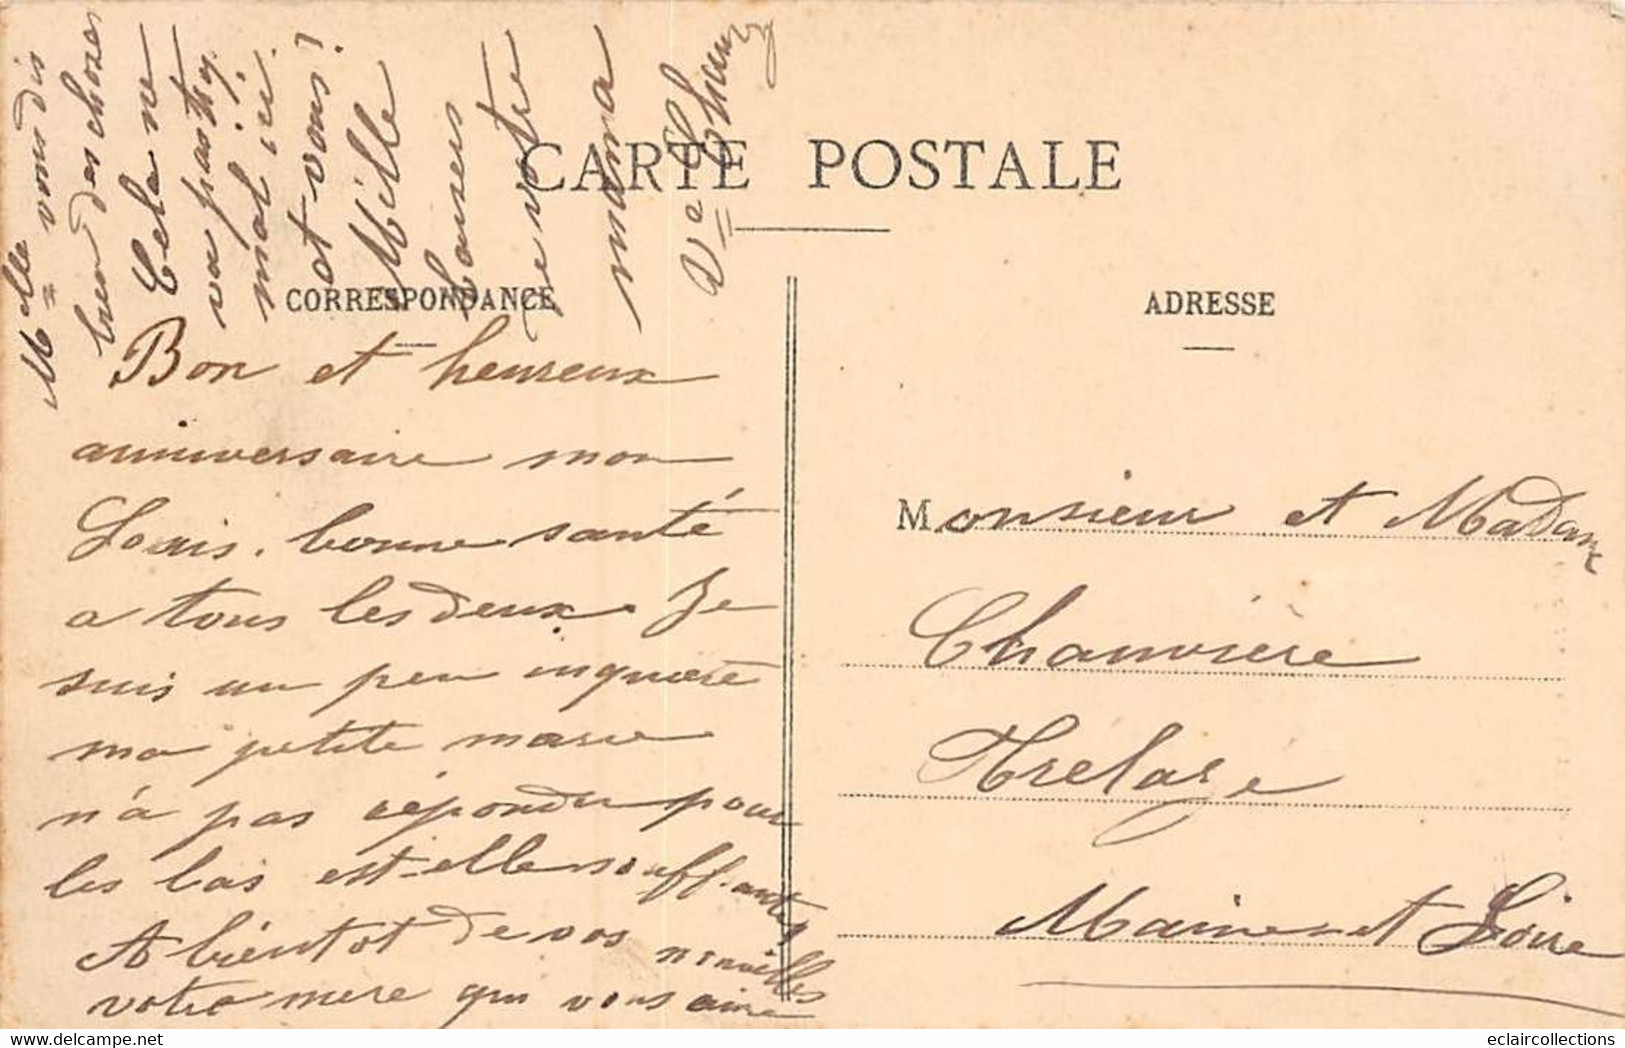 CARTE POSTALE
CORRESPONDANCE
ADRESSE
Bon et heureux
anniversaire mon
Louis. bonne santé
a tous les deux. Je
suis un peu inquiete
ma petite marie
n'a pas répondu pour
les bas est-elle souffrante
A bientot de vos nouvelles
votre mere qui vous aime
Melle vous dis
bien des choses
Cela ne
va pas
mal ici.
et vous?
Mille
baisers
de votre
mama
Ve
Monsieur et Madame
Chauvière
Trelaze
Maine et Loire
eclaircollections